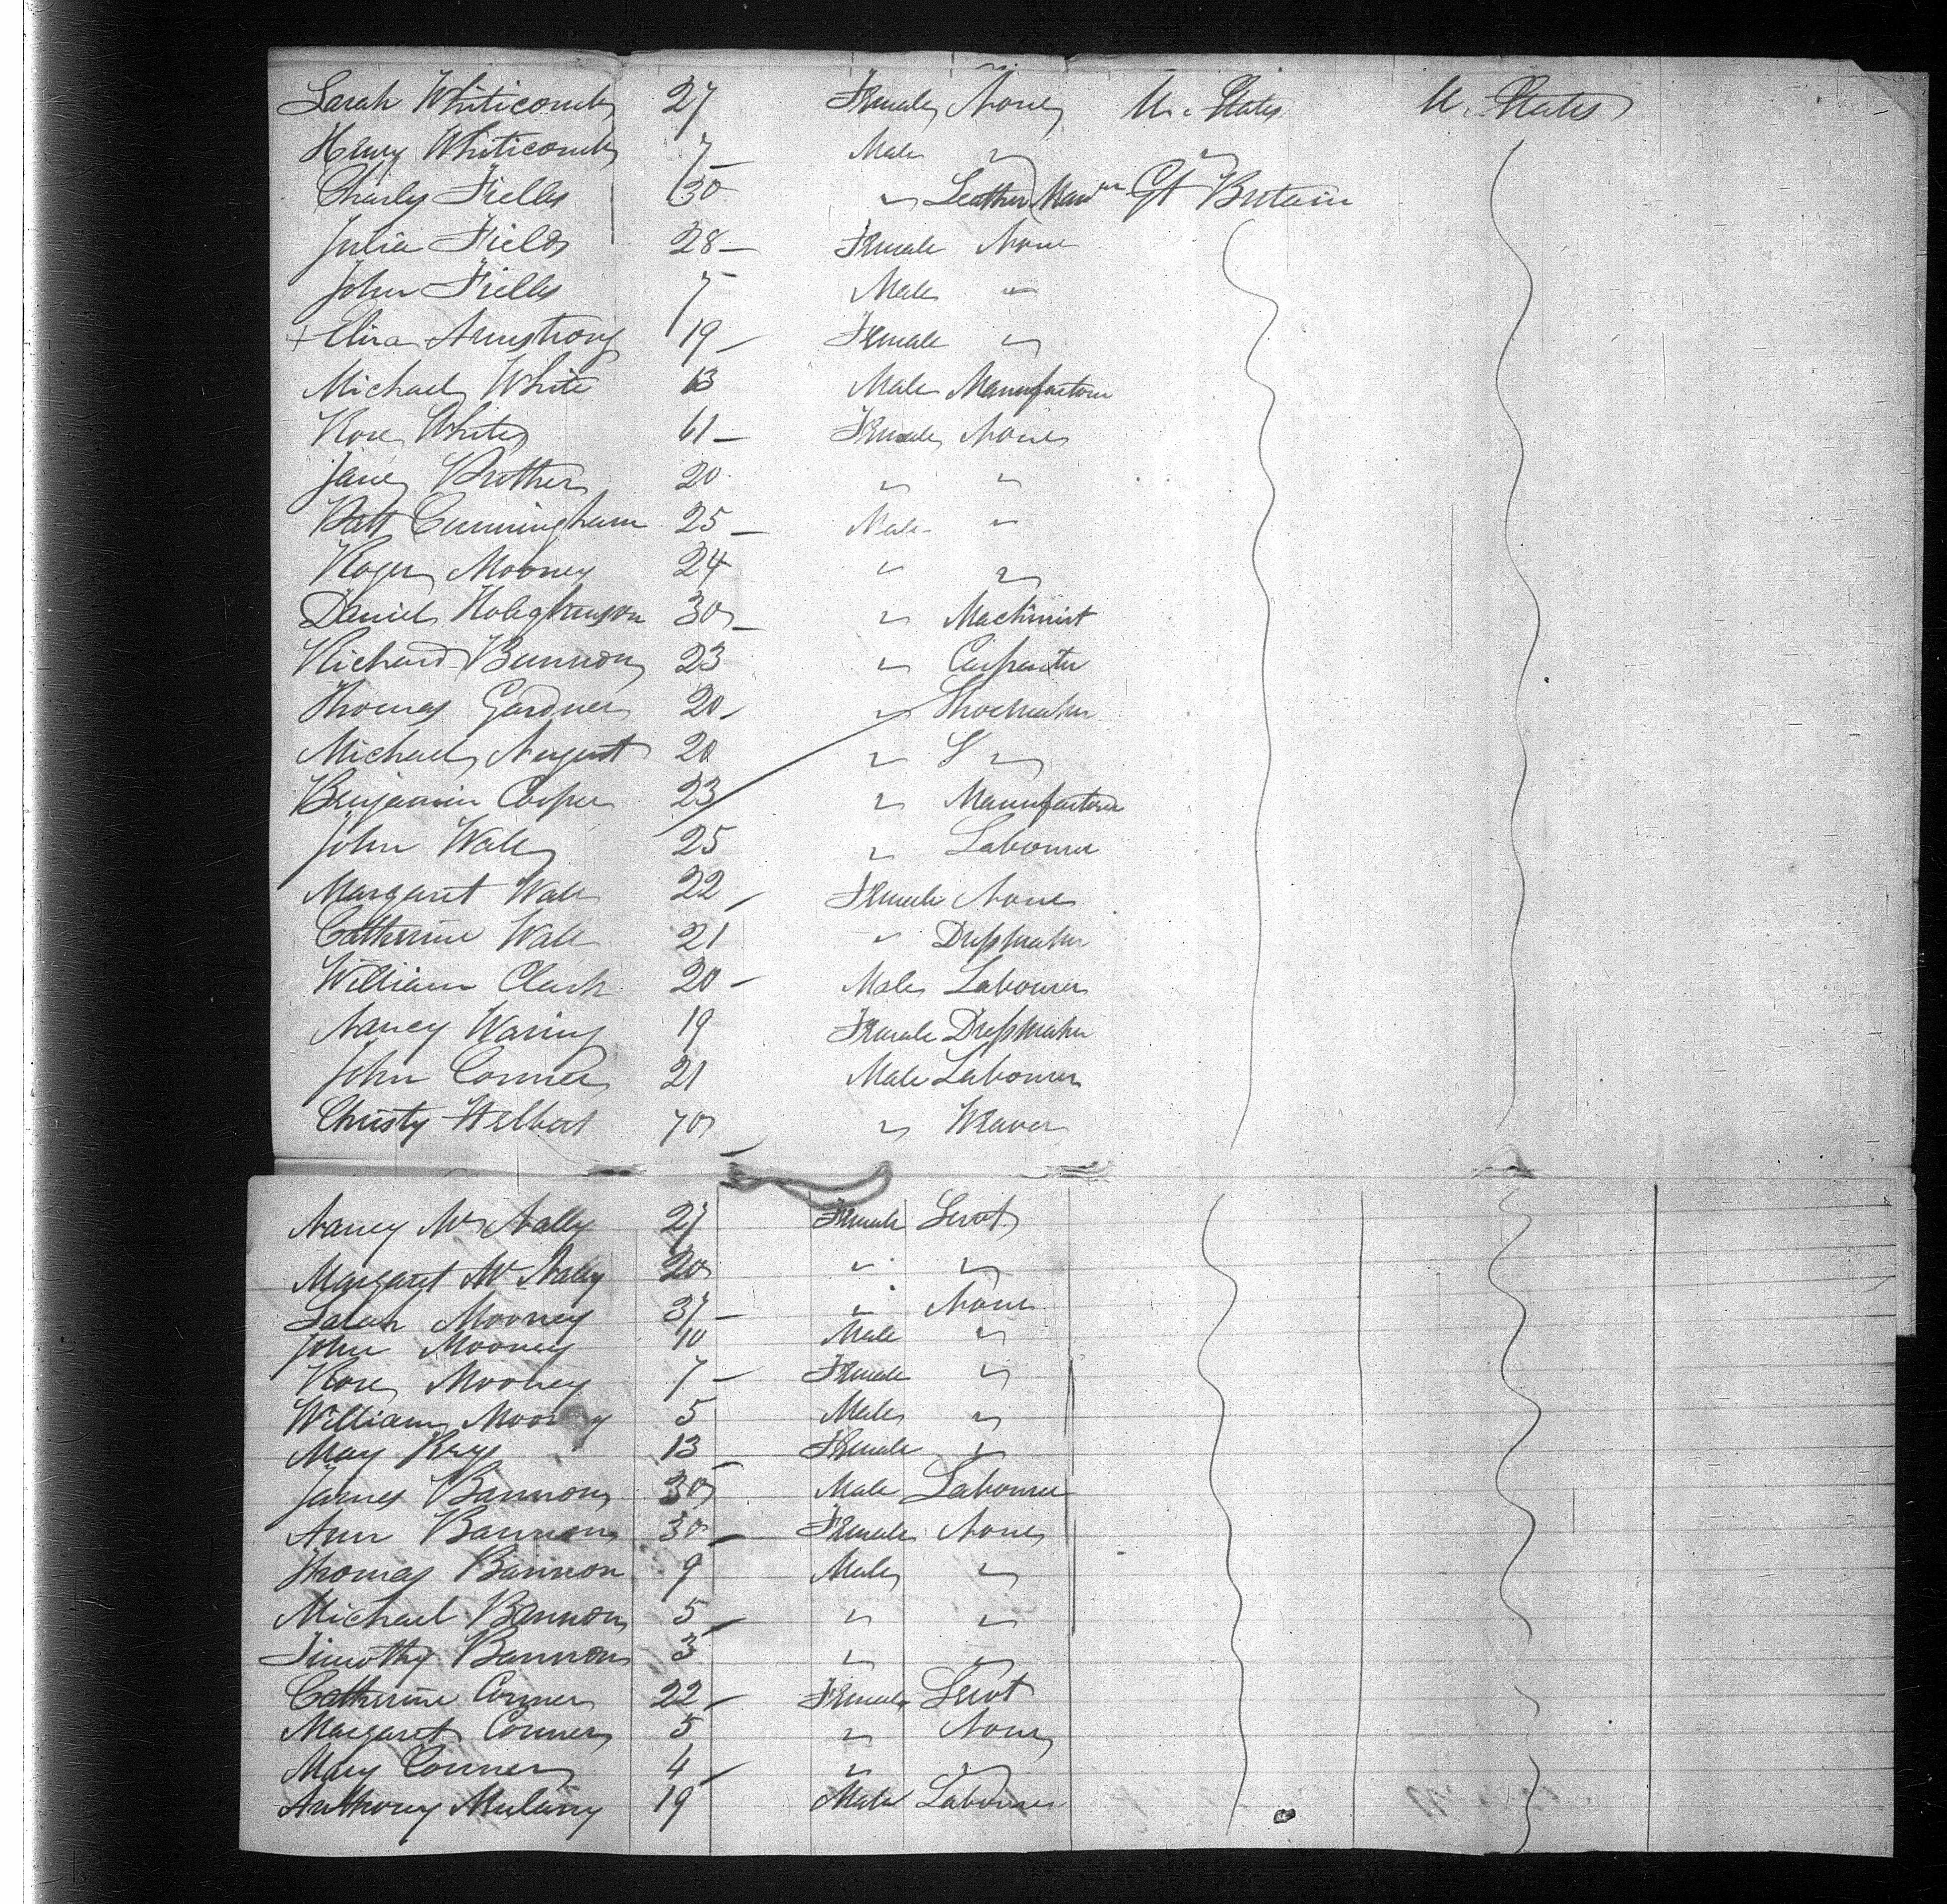 Sarah Whiticomb 27 Female None U. States U. States
Henry Whiticomb 7 Male " "
Charly Fields 30 " Leather Gt Britain
Julia Fields 28 Female None
John Fields 7 Male "
+ Eliza Armstrong 19 Female "
Michael White 13 Male Manufacturer
Rose White 61 Female None
Jane Brother 20 " "
Patt Cunningham 25 Male "
Roger Mooney 24 " "
Daniel 30 " Machinist
Richard Bunnon 23 " Carpenter
Thomas Gardner 20 " Shoemaker
Michael August 20 " S "
Benjamin Cooper 23 " Manufacturer
John Wall 25 " Labourer
Margaret Wall 22 Female None
Catherine Wall 21 " Dressmaker
William Clark 20 Male Labourer
Nancy Waring 19 Female Dressmaker
John Conner 21 Male Labourer
Christy Helbert 70 " Weaver
Nancy Mc Nally 27 Female Servt
Margaret Mc Nally 20 " "
Sarah Mooney 37 " None
John Mooney 10 Male "
Rose Mooney 7 Female "
William Mooney 5 Male "
May 13 Female "
James Bannon 30 Male Labourer
Ann Bannon 30 Female None
Thomas Bannon 9 Male "
Michael Bannon 5 " "
Timothy Bannon 3 " "
Catherine Conner 22 Female Servt
Margaret Conner 5 " None
Mary Conner 4 " "
Anthony Mulany 19 Male Labourer